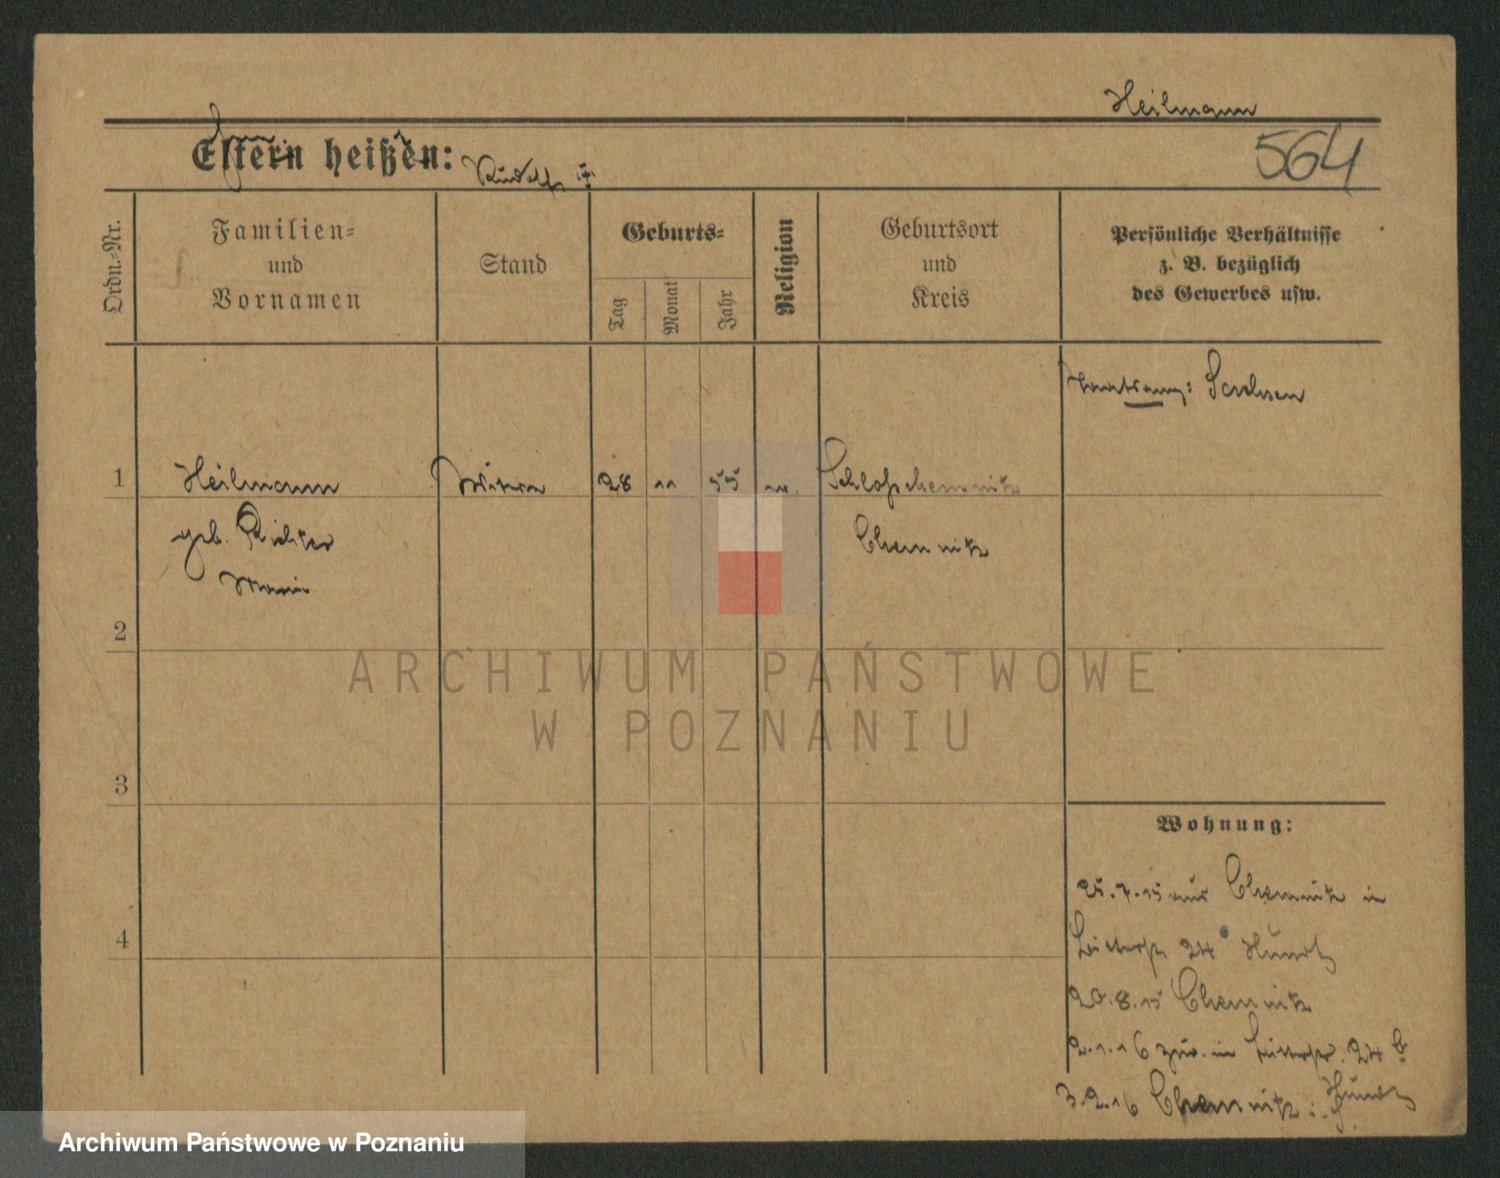 Heilmann
564
Eltern heißen:
Rudolf
Ordn.=Nr.
Familien=
und
Vornamen
Stand
Geburts=
Tag
Monat
Jahr
Religion
Geburtsort
und
Kreis
Persönliche Verhältnisse
z. B. bezüglich
des Gewerbes usw.
Sachsen
1
Heilmann
Witwe
28
11
55
Schloßchemnitz
geb. Richter
Chemnitz
Marie
2
3
4
Wohnung:
25.7.15 aus Chemnitz in
24 Hundt
20.8.15 Chemnitz
2.1.16 zur. in 24 b.
3.2.16 Chemnitz Hundt
ARCHIWUM PAŃSTWOWE
W POZNANIU
Archiwum Państwowe w Poznaniu